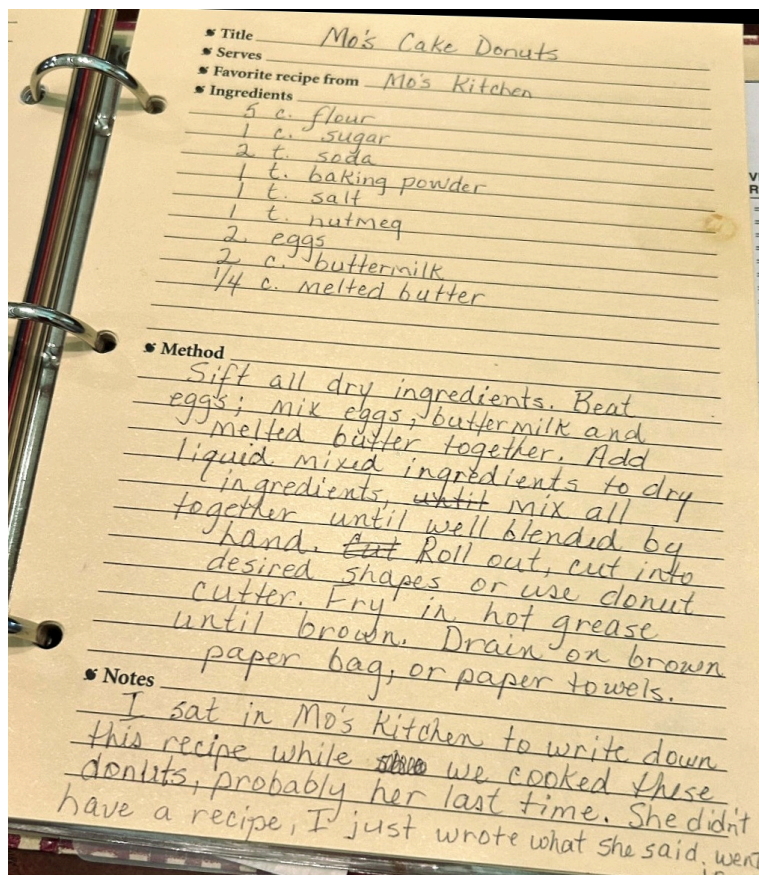 Title Mo's Cake Donuts
Serves
Favorite recipe from Mo's Kitchen
Ingredients
5 c. flour
1 c. sugar
2 t. soda
1 t. baking powder
1 t. salt
1 t. nutmeg
2 eggs
2 c. buttermilk
1/4 c. melted butter
Method
Sift all dry ingredients. Beat
eggs; mix eggs, buttermilk and
melted butter together. Add
liquid mixed ingredients to dry
ingredients, until mix all
together until well blended by
hand. Cut Roll out, cut into
desired shapes or use donut
cutter. Fry in hot grease
until brown. Drain on brown
paper bag, or paper towels.
Notes
I sat in Mo's Kitchen to write down
this recipe while we cooked these
donuts, probably her last time. She didn't
have a recipe, I just wrote what she said. went